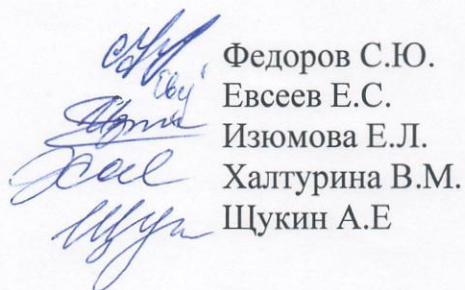 Федоров С.Ю.
Евсеев Е.С.
Изюмова Е.Л.
Халтурина В.М.
Щукин А.Е